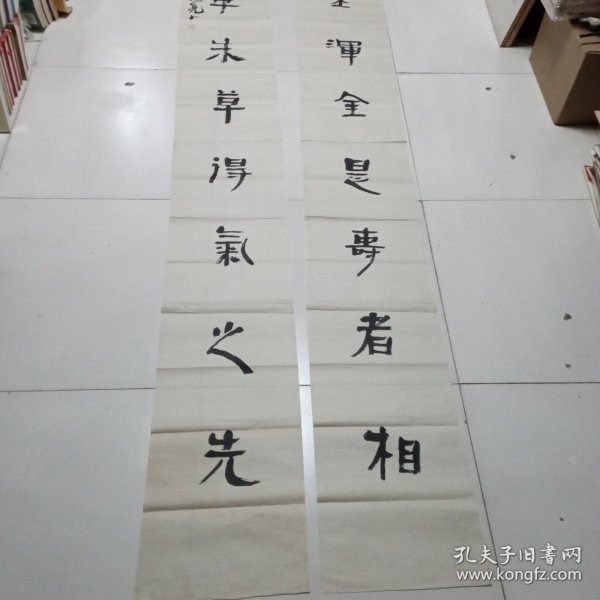 渾全是壽者相
朱草得氣之先
孔夫子旧书网
www.kongfz.com